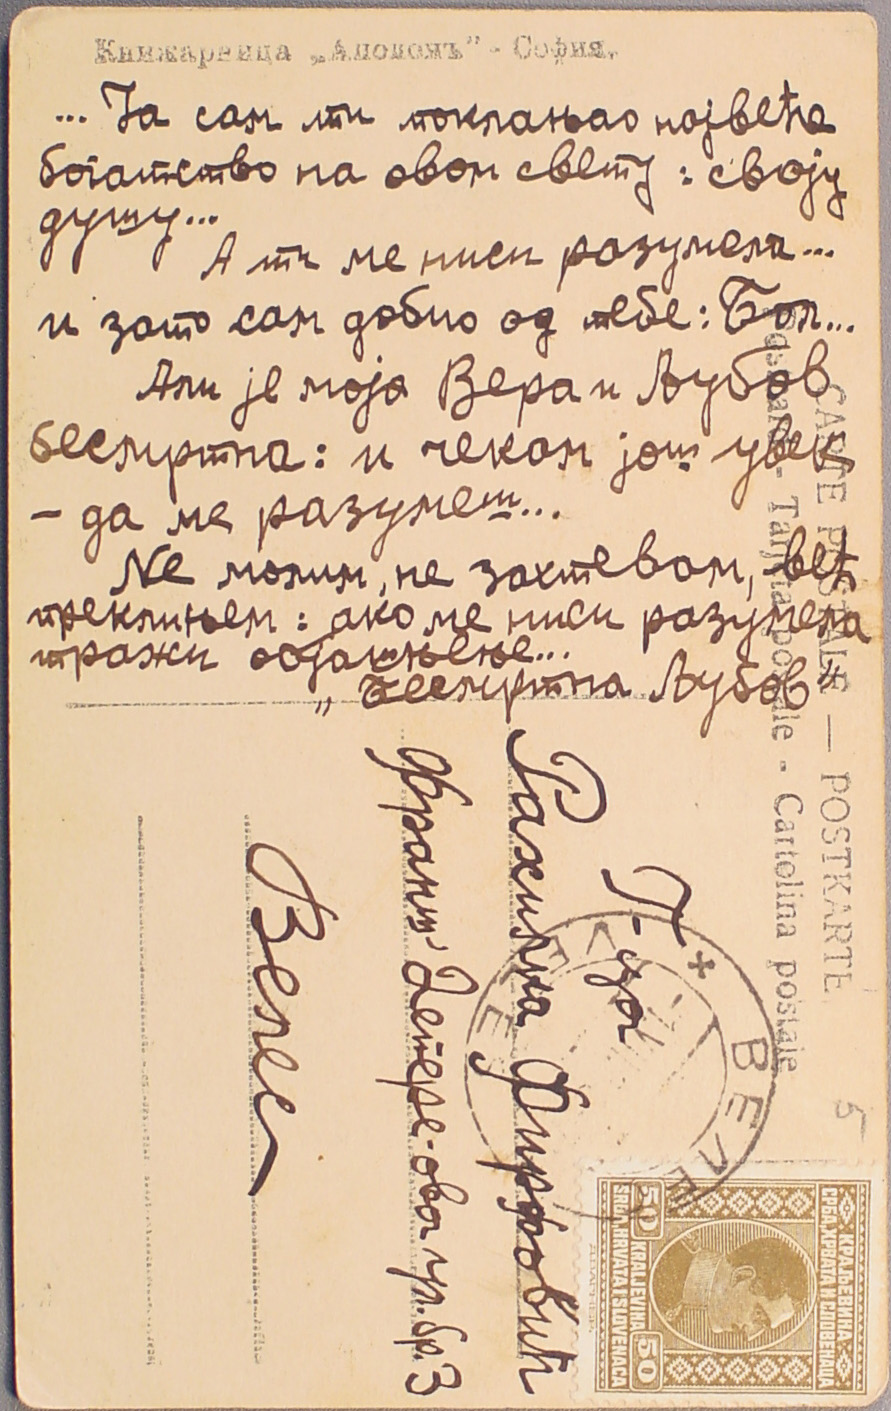 Книжарница „Аполонъ" - София.
... Ја сам ти поклањао највеће
богатство на овом свету : своју
душу...
А ти ме ниси разумела...
и зато сам добио од тебе: Бол...
Али је моја Вера и Љубов
бесмртна : и чекам још увек
– да ме разумеш...
Не молим, не захтевам, већ
преклињем : ако ме ниси разумела
тражи објашњење...
„Бесмртна Љубов"
CARTE POSTALE — POSTKARTE
Tarjeta postale - Cartolina postale
Г-ђа
Рахилка Фирфовић
Франш Депере-ова ул. бр. 3
Велес
ВЕЛЕС
5
КРАЉЕВИНА
СРБА, ХРВАТА И СЛОВЕНАЦА
50 50
KRALJEVINA
SRBA, HRVATA I SLOVENACA